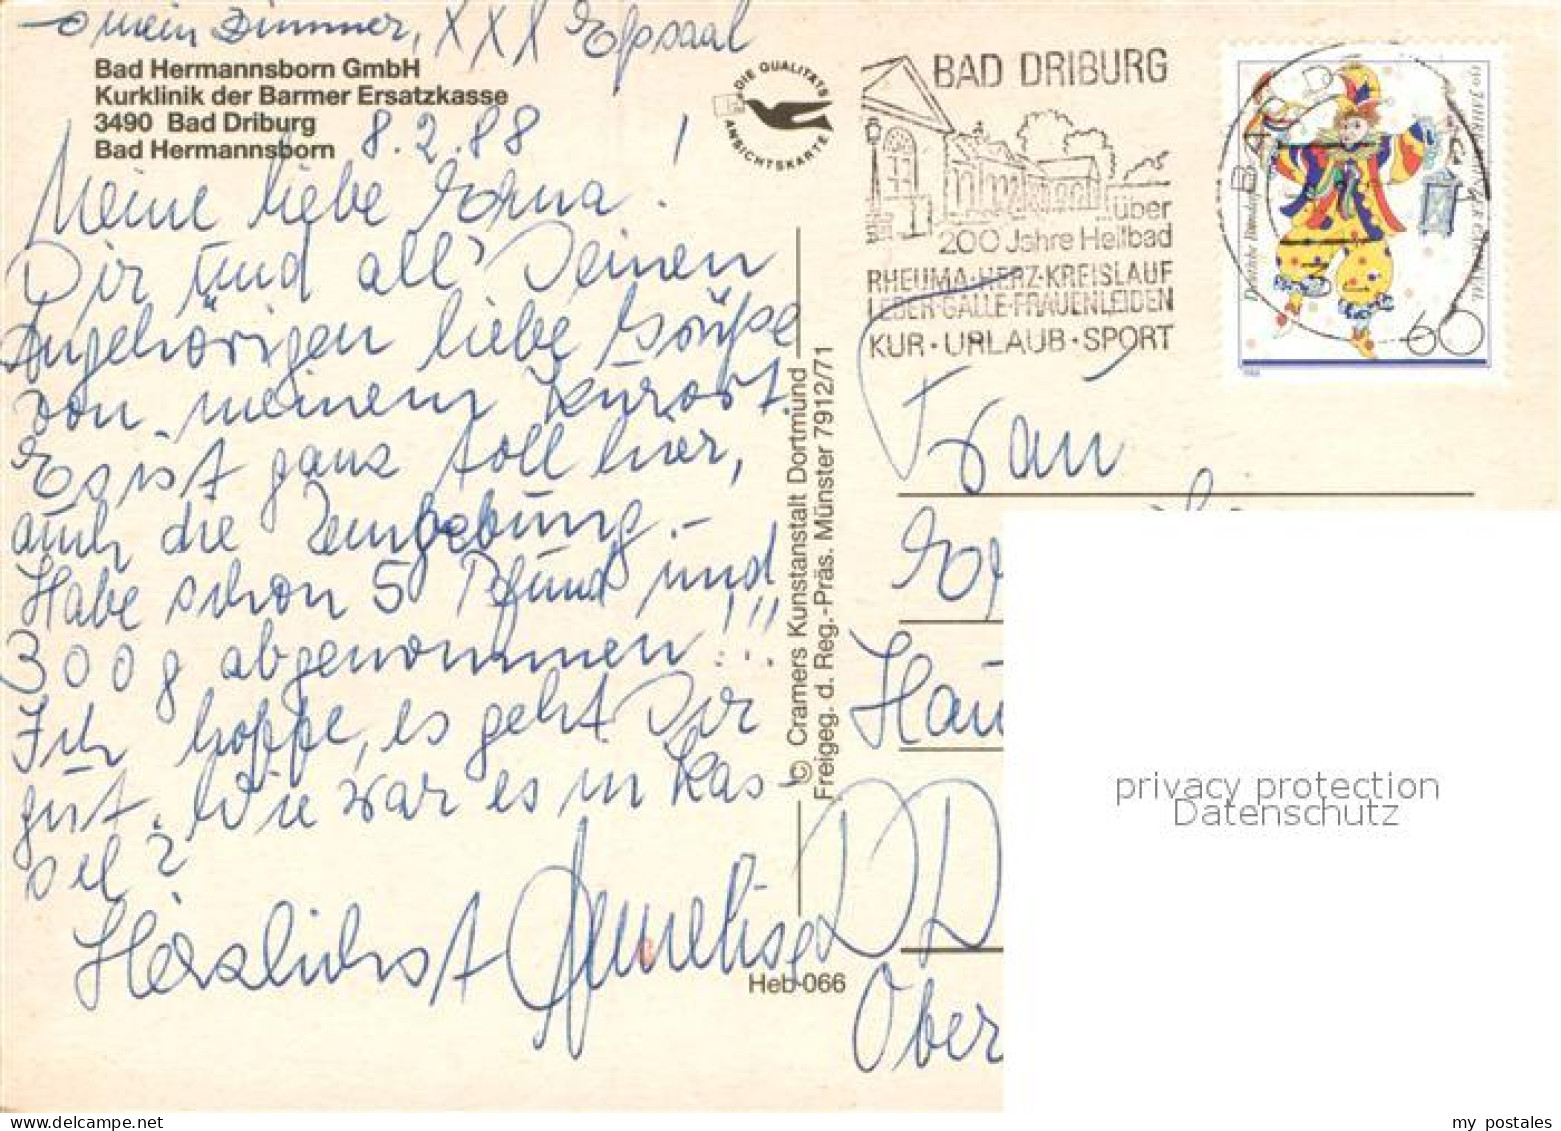 o mein Zimmer, XXX Eßsaal
Bad Hermannsborn GmbH
Kurklinik der Barmer Ersatzkasse
3490 Bad Driburg
Bad Hermannsborn
8.2.88
Meine liebe Erna!
Dir und all' Deinen
Angehörigen liebe Grüße
von meinem Kurort.
Es ist ganz toll hier,
auch die Umgebung.-
Habe schon 5 Pfund und
300 g abgenommen!!!
Ich hoffe, es geht Dir
gut. Wie war es in Kas-
sel?
Herzlichst Annelise
DIE QUALITÄTS
ANSICHTSKARTE
© Cramers Kunstanstalt Dortmund
Freigeg. d. Reg.-Präs. Münster 7912/71
Heb-066
BAD DRIBURG
über
200 Jahre Heilbad
RHEUMA·HERZ·KREISLAUF
LEBER·GALLE·FRAUENLEIDEN
KUR·URLAUB·SPORT
Deutsche Bundespost
150 JAHRE MAINZER KARNEVAL
60
Frau
DD
Ober
privacy protection
Datenschutz
my postales